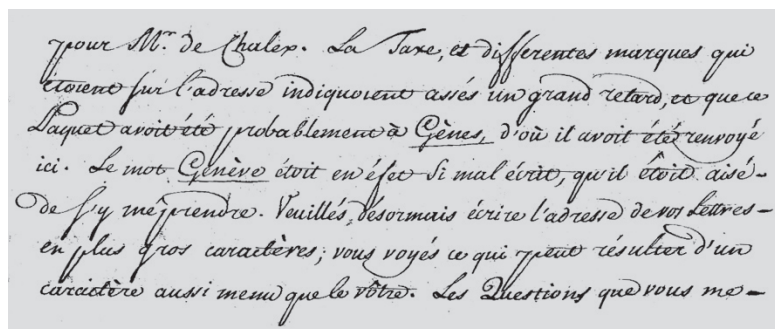 pour Mr. de Chalex. La Taxe, et differentes marques qui
étoient sur l'adresse indiquoient assés un grand retard, et que ce
Paquet avoit été probablement à Gènes, d'où il avoit été renvoyé
ici. Le mot Genève étoit en éfet si mal écrit, qu'il étoit aisé
de s'y méprendre. Veuillés, désormais écrire l'adresse de vos Lettres
en plus gros caractères; vous voyés ce qui peut résulter d'un
caractère aussi menu que le vôtre. Les Questions que vous me